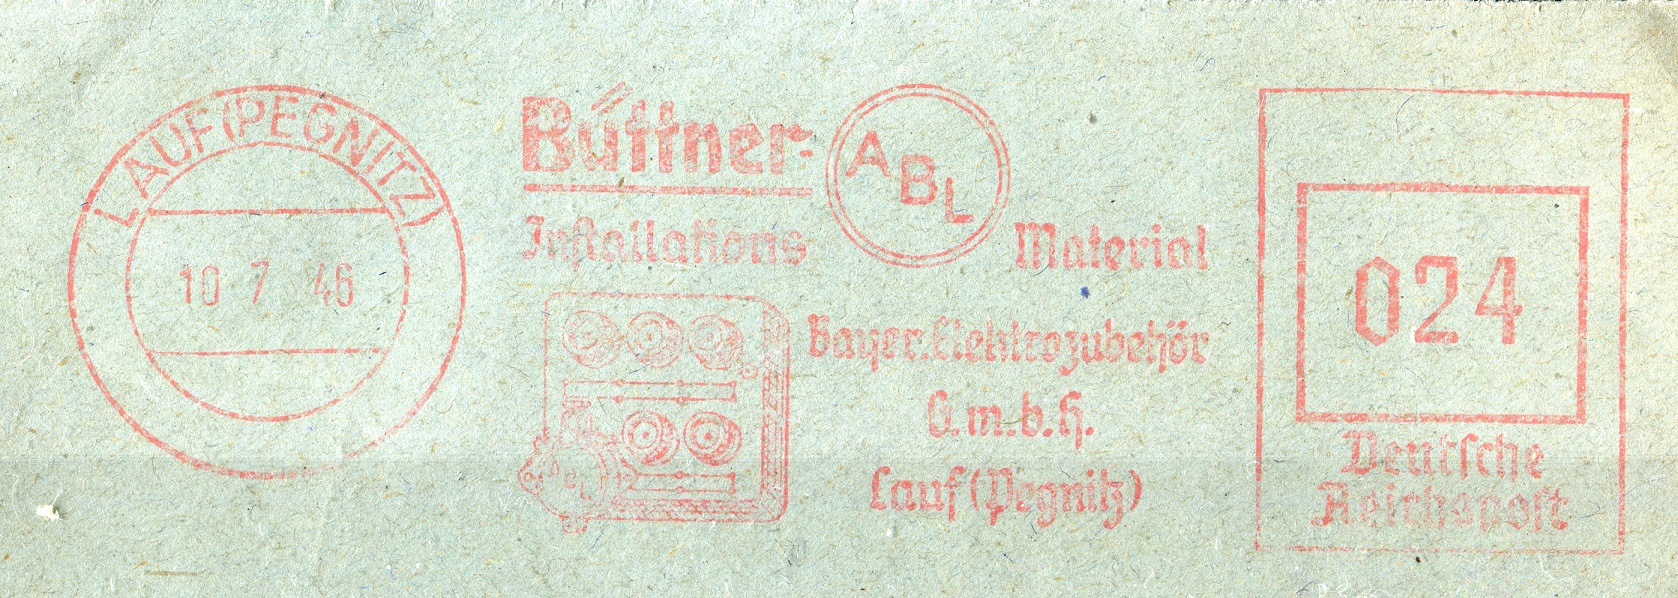 LAUF (PEGNITZ)
10 7 46
Büttner-
ABL
Installations
Material
Bayer. Elektrozubehör
G.m.b.H.
Lauf (Pegnitz)
024
Deutsche
Reichspost